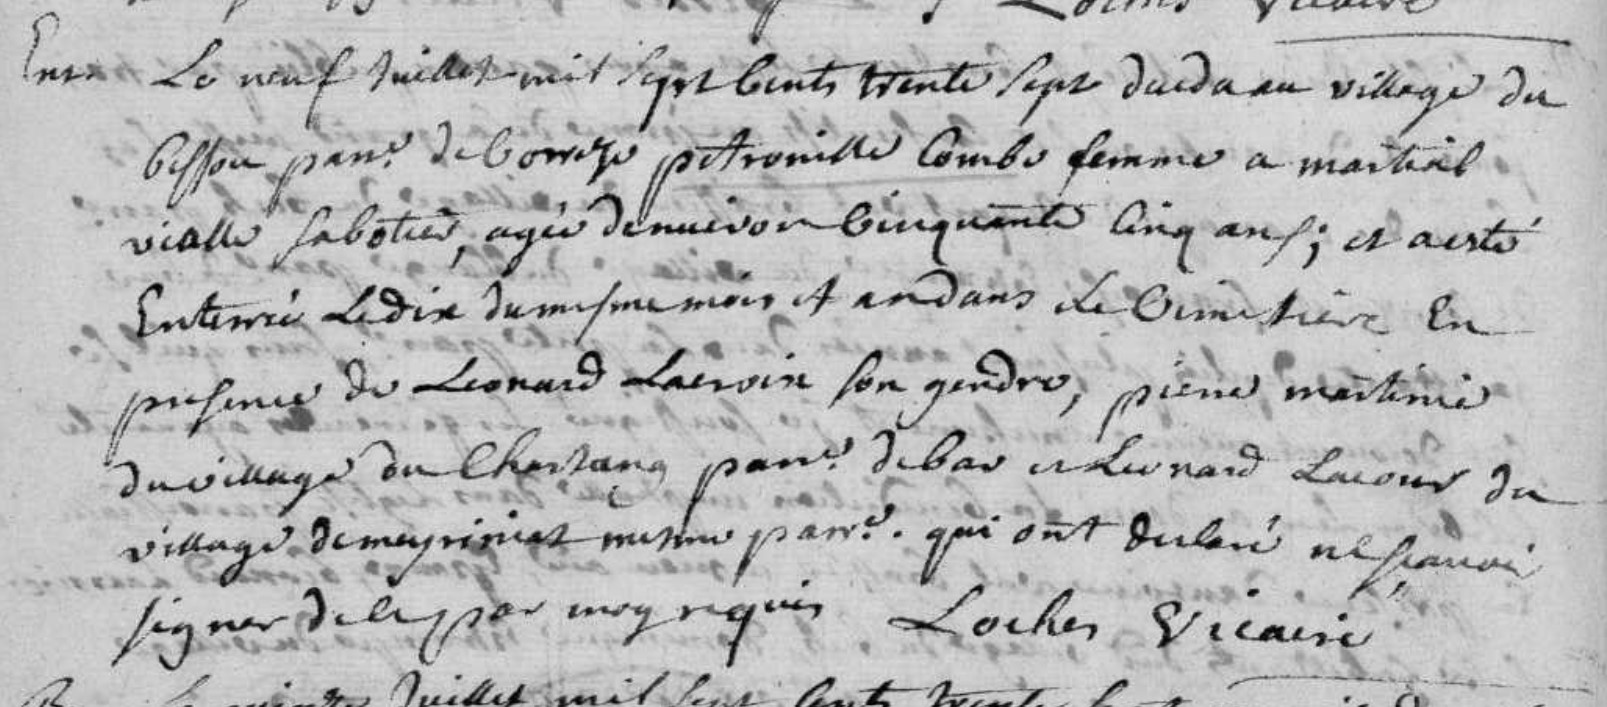 Loches Vicaire
Enter. Le neuf Juillet mil sept Cents trente sept decda au village du
bessou parr.e de Correze petronille Combe femme a martial
vialle sabotier, agée denuiron Cinquante Cinq ans; et a esté
Enterré Le dix du mesme mois et an dans le Cimetiere En
presence de Leonard Lacroix son gendre, pierre martinie
du village du Chastang parr.e de bar et Leonard Lacour du
village de meyriniat mesme parr.e. qui ont declaré ne scauoir
signer de ce par moy requis Loches Vicaire
Juillet mil sept Cents trente